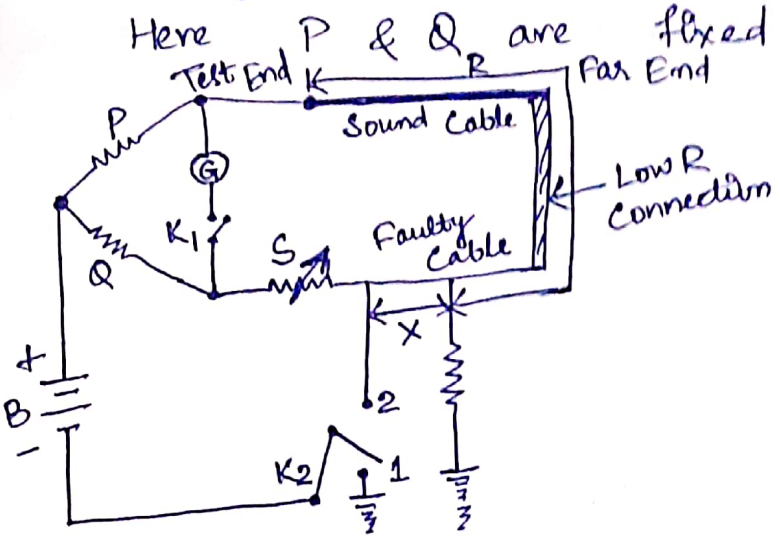 Here P & Q are fixed
Test End R Far End
P
Sound Cable
G
Low R
Connection
K1
Q
S
Faulty
Cable
X
+
B
-
2
K2
1